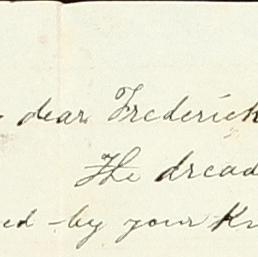 dear Frederick
The dread
ed by your Kn